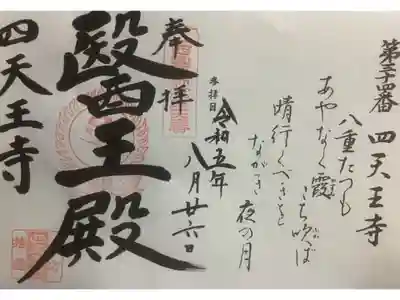 第三十四番 四天王寺
八重たつも
あやなく霞
こち吹ば
晴行くべきを
ながき夜の月
参拝日
令和五年
八月廿六日
奉拝
醫王殿
四天王寺